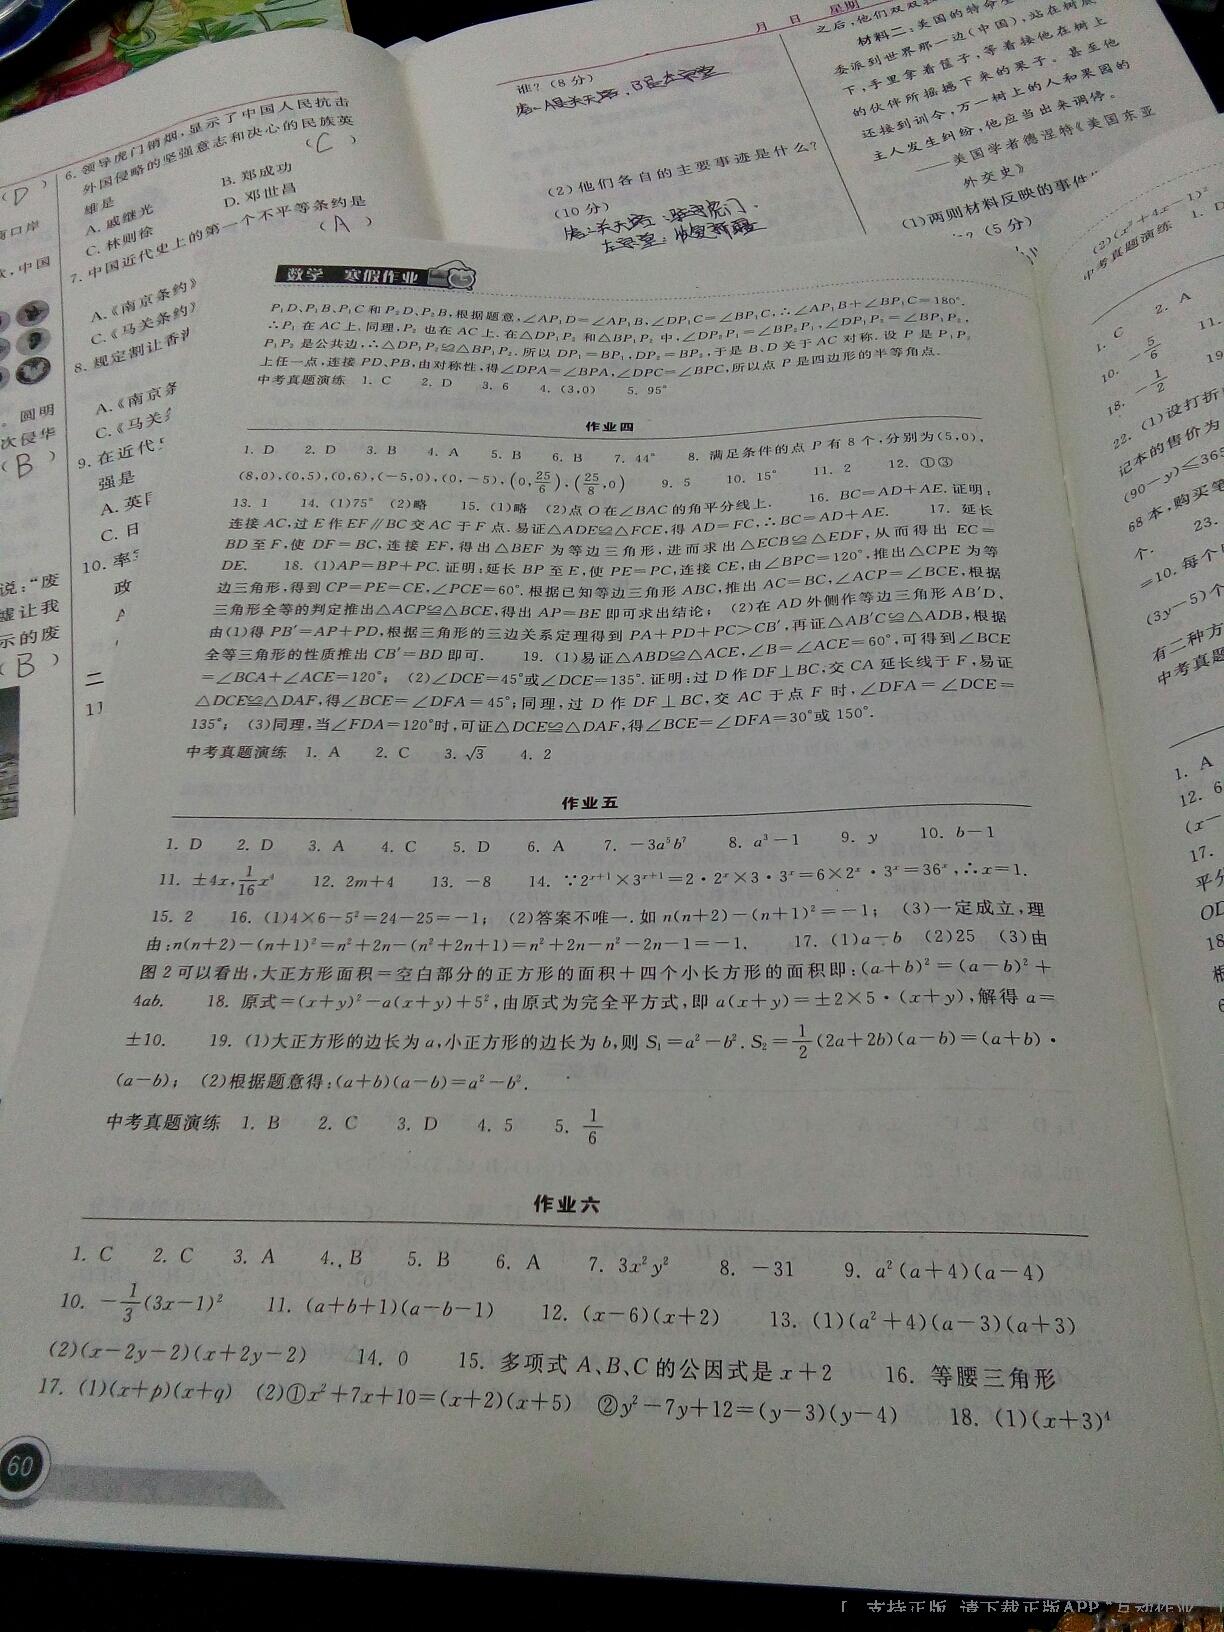 月 日 星期
谁?(8分)
(2)他们各自的主要事迹是什么?
(10分)
材料二:美国的特命
委派到世界那一边(中国),站在树底
下,手里拿着筐子,等着接他在树上
的伙伴所摇撼下来的果子。甚至他
还接到训令,万一树上的人和果园的
主人发生纠纷,他应当出来调停。
——美国学者德涅特《美国东亚
外交史》
(1)两则材料反映的事件
(5分)
6. 领导虎门销烟,显示了中国人民抗击
外国侵略的坚强意志和决心的民族英
雄是 (C)
A. 戚继光 B. 郑成功
C. 林则徐 D. 邓世昌
7. 中国近代史上的第一个不平等条约是
(A)
A.《南京条约》
C.《马关条约》
8. 规定割让香港
A.《南京条
C.《马关
9. 在近代
强是
A. 英
C. 日
数学 寒假作业
P₁D、P₁B、P₁C和P₂D、P₂B,根据题意,∠AP₁D=∠AP₁B,∠DP₁C=∠BP₁C,∴∠AP₁B+∠BP₁C=180°.
∴P₁在AC上.同理,P₂也在AC上.在△DP₁P₂和△BP₁P₂中,∠DP₂P₁=∠BP₂P₁,∠DP₁P₂=∠BP₁P₂,
P₁P₂是公共边,∴△DP₁P₂≌△BP₁P₂.所以DP₁=BP₁,DP₂=BP₂,于是B、D关于AC对称.设P是P₁P₂
上任一点,连接PD、PB,由对称性,得∠DPA=∠BPA,∠DPC=∠BPC,所以点P是四边形的半等角点.
中考真题演练 1. C 2. D 3. 6 4. (3,0) 5. 95°
作业四
1. D 2. D 3. B 4. A 5. B 6. B 7. 44° 8. 满足条件的点P有8个,分别为(5,0),
(8,0),(0,5),(0,6),(-5,0),(0,-5),(0,25/6),(25/8,0) 9. 5 10. 15° 11. 2 12. ①③
13. 1 14. (1)75° (2)略 15. (1)略 (2)点O在∠BAC的角平分线上. 16. BC=AD+AE.证明:
连接AC,过E作EF∥BC交AC于F点.易证△ADE≌△FCE,得AD=FC,∴BC=AD+AE. 17. 延长
BD至F,使DF=BC,连接EF,得出△BEF为等边三角形,进而求出△ECB≌△EDF,从而得出EC=
DE. 18. (1)AP=BP+PC.证明:延长BP至E,使PE=PC,连接CE,由∠BPC=120°,推出△CPE为等
边三角形,得到CP=PE=CE,∠PCE=60°.根据已知等边三角形ABC,推出AC=BC,∠ACP=∠BCE,根据
三角形全等的判定推出△ACP≌△BCE,得出AP=BE即可求出结论; (2)在AD外侧作等边三角形AB′D、
由(1)得PB′=AP+PD,根据三角形的三边关系定理得到PA+PD+PC>CB′,再证△AB′C≌△ADB,根据
全等三角形的性质推出CB′=BD即可. 19. (1)易证△ABD≌△ACE,∠B=∠ACE=60°,可得到∠BCE
=∠BCA+∠ACE=120°; (2)∠DCE=45°或∠DCE=135°.证明:过D作DF⊥BC,交CA延长线于F,易证
△DCE≌△DAF,得∠BCE=∠DFA=45°;同理,过D作DF⊥BC,交AC于点F时,∠DFA=∠DCE=
135°; (3)同理,当∠FDA=120°时,可证△DCE≌△DAF,得∠BCE=∠DFA=30°或150°.
中考真题演练 1. A 2. C 3. √3 4. 2
作业五
1. D 2. D 3. A 4. C 5. D 6. A 7. -3a⁵b⁷ 8. a³-1 9. y 10. b-1
11. ±4x,1/16x⁴ 12. 2m+4 13. -8 14. ∵2ˣ⁺¹×3ˣ⁺¹=2·2ˣ×3·3ˣ=6×2ˣ·3ˣ=36ˣ,∴x=1.
15. 2 16. (1)4×6-5²=24-25=-1; (2)答案不唯一.如n(n+2)-(n+1)²=-1; (3)一定成立,理
由:n(n+2)-(n+1)²=n²+2n-(n²+2n+1)=n²+2n-n²-2n-1=-1. 17. (1)a-b (2)25 (3)由
图2可以看出,大正方形面积=空白部分的正方形的面积+四个小长方形的面积即:(a+b)²=(a-b)²+
4ab. 18. 原式=(x+y)²-a(x+y)+5²,由原式为完全平方式,即a(x+y)=±2×5·(x+y),解得a=
±10. 19. (1)大正方形的边长为a,小正方形的边长为b,则S₁=a²-b².S₂=1/2(2a+2b)(a-b)=(a+b)·
(a-b); (2)根据题意得:(a+b)(a-b)=a²-b².
中考真题演练 1. B 2. C 3. D 4. 5 5. 1/6
作业六
1. C 2. C 3. A 4. B 5. B 6. A 7. 3x²y² 8. -31 9. a²(a+4)(a-4)
10. -1/3(3x-1)² 11. (a+b+1)(a-b-1) 12. (x-6)(x+2) 13. (1)(a²+4)(a-3)(a+3)
(2)(x-2y-2)(x+2y-2) 14. 0 15. 多项式A、B、C的公因式是x+2 16. 等腰三角形
17. (1)(x+p)(x+q) (2)①x²+7x+10=(x+2)(x+5) ②y²-7y+12=(y-3)(y-4) 18. (1)(x+3)⁴
60
(2)(x²+4x-1)²
中考真题演练 1. D
1. C 2. A
10. -5/6 11.
18. -1/2 19
22. (1)设打折
记本的售价为
(90-y)≤365
68本,购买笔
个. 23.
=10. 每个
(3y-5)个
有二种方
中考真题
1. A
12. 6
(x-
17.
平分
18
支持正版 请下载正版APP "互动作业"